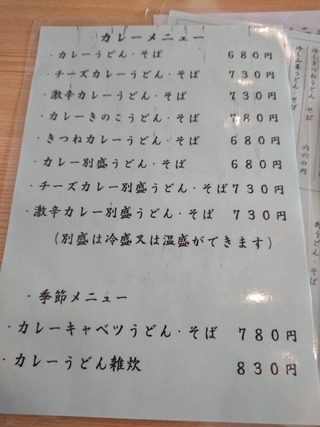 カレーメニュー
・カレーうどん・そば 680円
・チーズカレーうどん・そば 730円
・激辛カレーうどん・そば 730円
・カレーきのこうどん・そば 780円
・きつねカレーうどん・そば 680円
・カレー別盛うどん・そば 680円
・チーズカレー別盛うどん・そば 730円
・激辛カレー別盛うどん・そば 730円
(別盛は冷盛又は温盛ができます)
・季節メニュー
・カレーキャベツうどん・そば 780円
・カレーうどん雑炊 830円